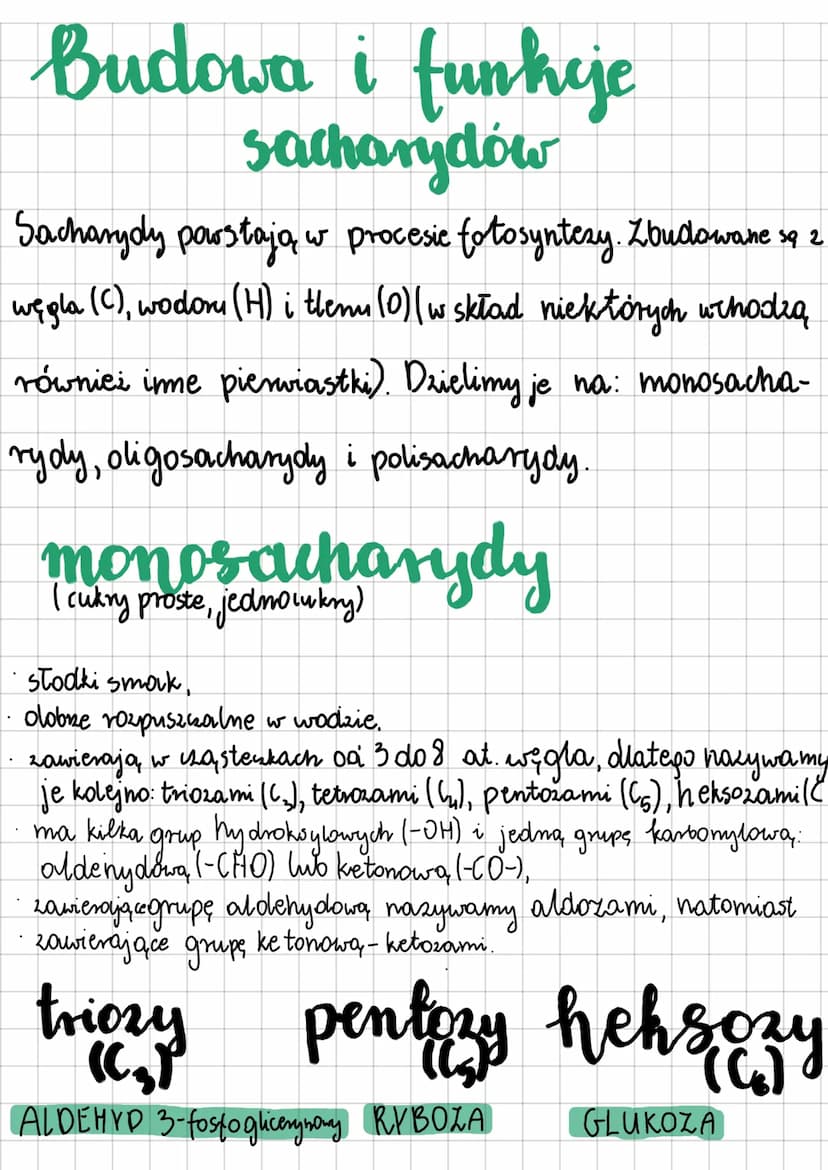 Budowa i funkcje
sacharydów
Sacharydy powstają w procesie fotosyntezy. Zbudowane są z
węgla (C), wodoru (H) i tlenu (O) (w skład niektórych wchodzą
również inne pierwiastki). Dzielimy je na: monosacha-
rydy, oligosacharydy i polisacharydy.
monosacharydy
(cukry proste, jednocukry)
· słodki smak,
· dobrze rozpuszczalne w wodzie.
· zawierają w cząsteczkach od 3 do 8 at. węgla, dlatego nazywamy
je kolejno: triozami (C₃), tetrozami (C₄), pentozami (C₅), heksozami (C
· ma kilka grup hydroksylowych (-OH) i jedną grupę karbonylową:
aldehydową (-CHO) lub ketonową (-CO-),
· zawierające grupę aldehydową nazywamy aldozami, natomiast
· zawierające grupę ketonową - ketozami.
triozy pentozy heksozy
(C₃) (C₅) (C₆)
ALDEHYD 3-fosfoglicerynowy RYBOZA GLUKOZA